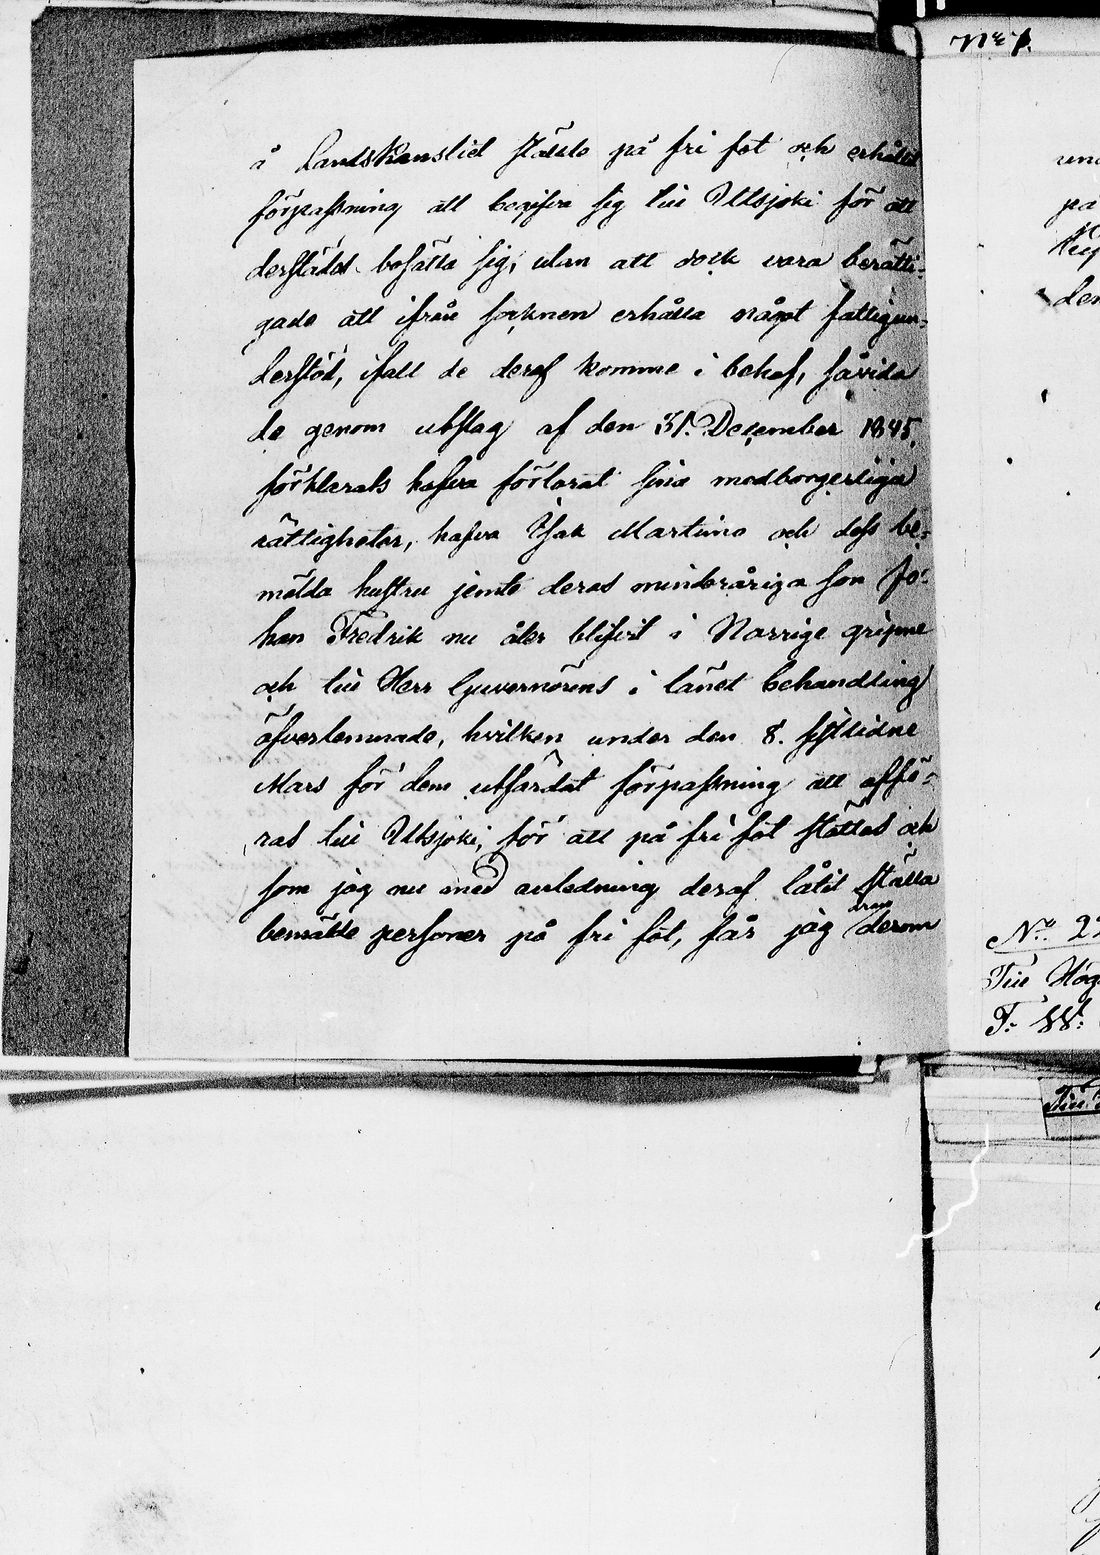 å Landskansliet ställde på fri fot och erhållit
förpassning att begifva sig till Utsjoki för att
derstädes bosätta sig, utan att dock vara berätti-
gade att ifrån socknen erhålla något fattigun-
derstöd, ifall de deraf komme i behof, såvida
de genom utslag af den 31. December 1845.
förklarats hafva förlorat sina medborgerliga
rättigheter, hafva Isak Martimo och dess be-
mälda hustru jemte deras minderåriga son Jo-
han Fredrik nu åter blifvit i Norrige gripne
och till Herr Guvernörens i länet behandling
öfverlemnade, hvilken under den 8. sistlidne
Mars för dem utfärdat förpassning att affö-
ras till Utsjoki, för att på fri fot ställas och
som jag nu med anledning deraf låtit ställa
bemälde personer på fri fot, får jag derom
N:o 1.
und
på
den
N:o 22
Till Hög
T. W.
Till